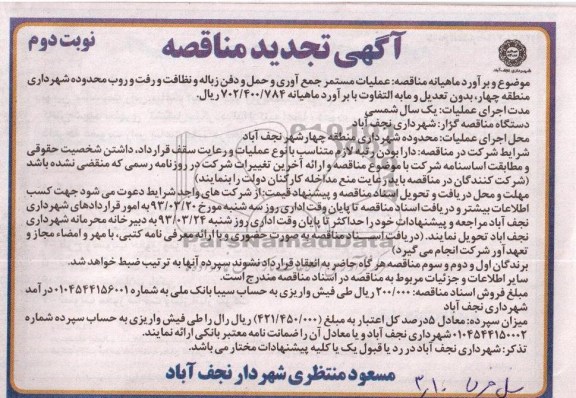 آگهی تجدید مناقصه
نوبت دوم
شهرداری نجف آباد
موضوع و برآورد ماهیانه مناقصه: عملیات مستمر جمع آوری و حمل و دفن زباله و نظافت و رفت و روب محدوده شهرداری
منطقه چهار، بدون تعدیل و مابه التفاوت با برآورد ماهیانه ۷۰۲/۴۰۰/۷۸۴ ریال.
مدت اجرای عملیات: یک سال شمسی
دستگاه مناقصه گزار: شهرداری نجف آباد
محل اجرای عملیات: محدوده شهرداری منطقه چهار شهر نجف آباد
شرایط شرکت در مناقصه: دارا بودن متناسب با نوع عملیات و رعایت سقف قرارداد، داشتن شخصیت حقوقی
و مطابقت اساسنامه شرکت با موضوع مناقصه و ارائه آخرین تغییرات شرکت در روزنامه رسمی که منقضی نشده باشد
(شرکت کنندگان در مناقصه باید رعایت منع مداخله کارکنان دولت را بنمایند)
مهلت و محل دریافت و تحویل اسناد مناقصه و پیشنهاد قیمت: از شرکت های واجد شرایط دعوت می شود جهت کسب
اطلاعات بیشتر و دریافت اسناد مناقصه تا پایان وقت اداری روز سه شنبه مورخ ۹۳/۰۳/۲۰ به امور قراردادهای شهرداری
نجف آباد مراجعه و پیشنهادات خود را حداکثر تا پایان وقت اداری روز شنبه ۹۳/۰۳/۲۴ به دبیرخانه محرمانه شهرداری
نجف آباد تحویل نمایند. (دریافت اسناد مناقصه به صورت حضوری و با ارائه معرفی نامه کتبی، با مهر و امضاء مجاز و
تعهدآور شرکت انجام می گیرد)
برندگان اول و دوم و سوم مناقصه هر گاه حاضر به انعقاد قرارداد نشوند سپرده آنها به ترتیب ضبط خواهد شد.
سایر اطلاعات و جزئیات مربوط به مناقصه در اسناد مناقصه مندرج است.
مبلغ فروش اسناد مناقصه: ۲۰۰/۰۰۰ ریال طی فیش واریزی به حساب سیبا بانک ملی به شماره ۰۱۰۴۵۴۴۱۵۶۰۰۱ درآمد
شهرداری نجف آباد
میزان سپرده: معادل ۵درصد کل اعتبار به مبلغ (۴۲۱/۴۵۰/۰۰۰) ریال رال را طی فیش واریزی به حساب سپرده شماره
۰۱۰۴۵۴۴۱۵۰۰۰۲ شهرداری نجف آباد و یا معادل آن را ضمانت نامه معتبر بانکی ارائه نمایند.
تذکر: شهرداری نجف آباد در رد یا قبول یک یا کلیه پیشنهادات مختار می باشد.
مسعود منتظری شهردار نجف آباد
ParsNamadData